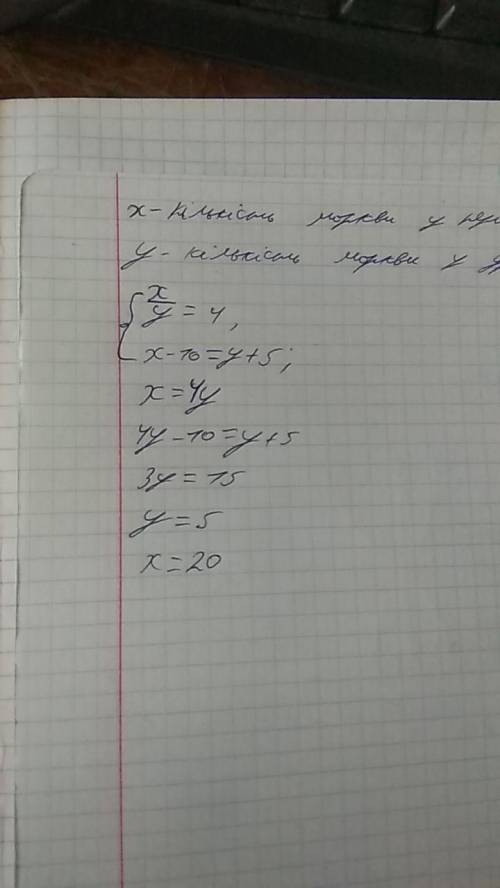 x - кількість моркви у
y - кількість моркви у
{ x/y = 4,
x-10=y+5;
x=4y
4y-10=y+5
3y=15
y=5
x=20